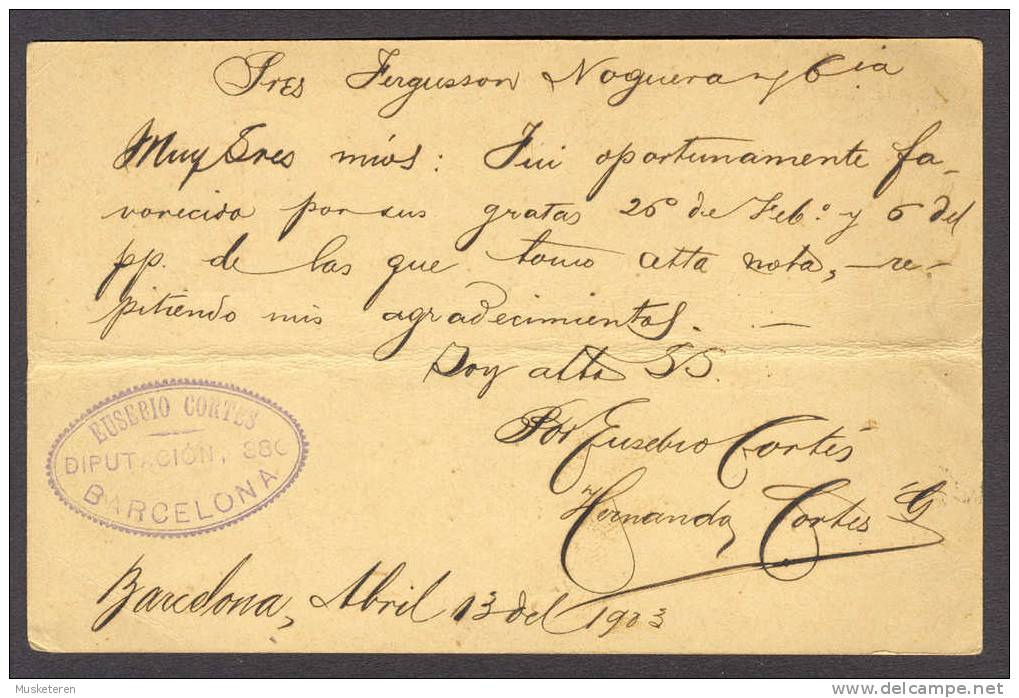 Sres Fergusson Noguera y Cia
Muy Sres mios: Fui oportunamente fa-
vorecido por sus gratas 26 de Febº y 6 del
pp. de las que tomo atta nota, re-
pitiendo mis agradecimientos. —
Soy atto SS.
Por Eusebio Cortés
Hernando Cortés G
EUSEBIO CORTES
DIPUTACIÓN, 380
BARCELONA
Barcelona, Abril 13 del 1903
Musketeren
delcampe.net